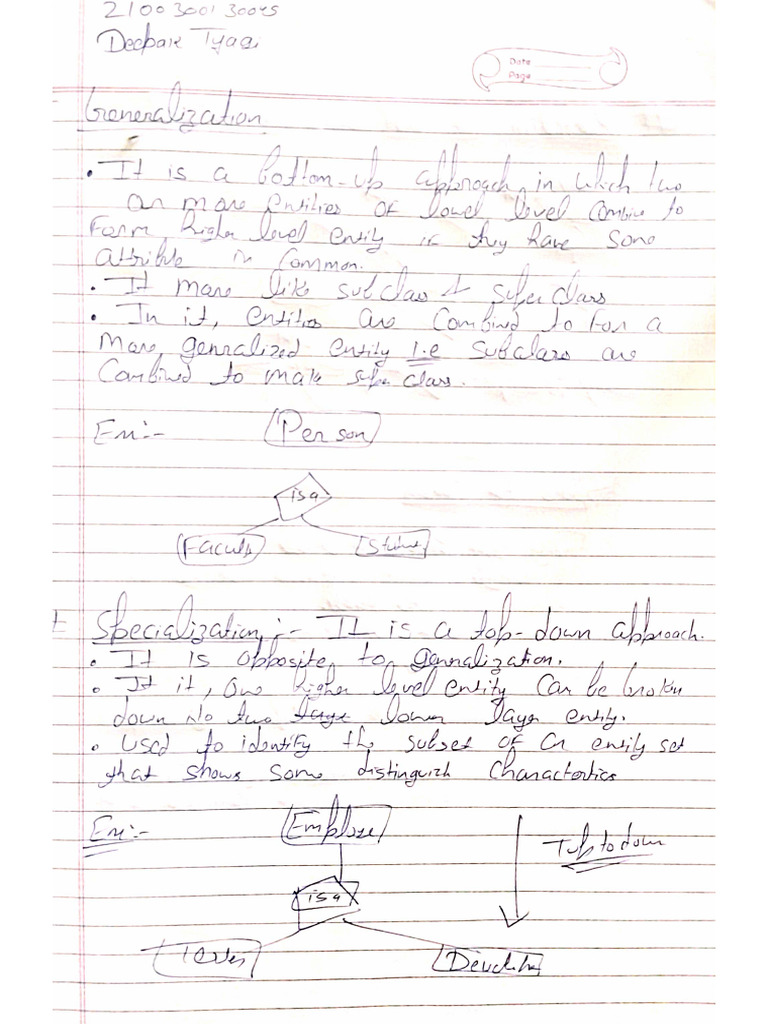 2100300130045
Deepak Tyagi
Date
Page
Generalization
• It is a bottom-up approach, in which two
or more entities of lower level combine to
Form higher level entity if they have some
attribute in common.
• It more like subclass & super class
• In it, entities are combined to for a
more genralized entity i.e subclass are
combined to make super class.
Ex:-
Person
isa
Faculty
Specialization :- It is a top-down approach.
• It is opposite to genralization.
• It it, one higher level entity can be broken
down two lower layer entity.
• used to identify the subset of an entity set
that shows some distinguish
Ex:-
isa